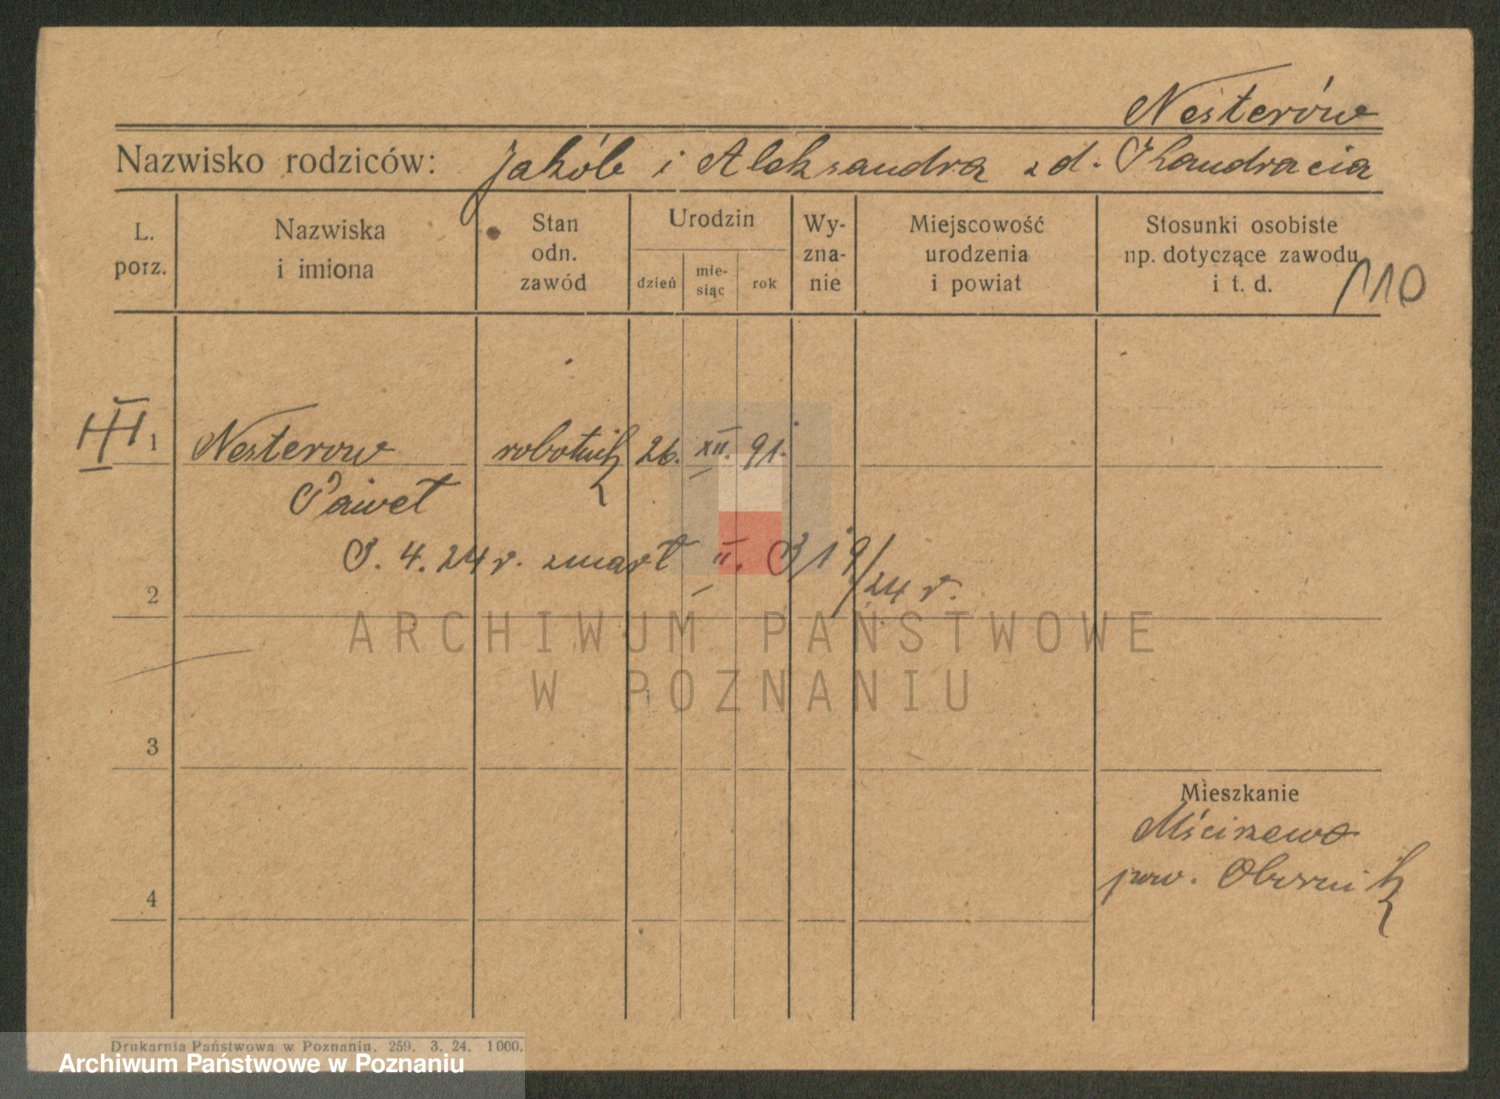 Nesterów
Nazwisko rodziców: Jakób i Aleksandra z d.
L. porz.
Nazwiska i imiona
Stan odn. zawód
Urodzin
dzień
mie-siąc
rok
Wy-zna-nie
Miejscowość urodzenia i powiat
Stosunki osobiste np. dotyczące zawodu i t. d.
110
III 1 Nesterow robotnik 26. XII. 91.
Paweł
3. 4. 24 r. zmarł II. 24 r.
2
ARCHIWUM PAŃSTWOWE
W POZNANIU
3
Mieszkanie
Mściszewo
pow. Oborniki
4
Drukarnia Państwowa w Poznaniu. 259. 3. 24. 1000.
Archiwum Państwowe w Poznaniu